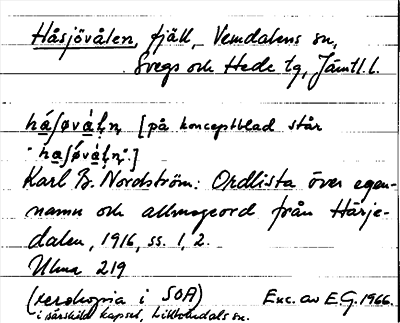 Håsjövålen, fjäll, Vemdalens sn,
Svegs och Hede tg, Jämtl. l.
håʃøvàl̥n̥ [på konceptblad står
"håʃøvàl̥n̥".]
Karl B. Nordström: Ordlista över egen-
namn och allmogeord från Härje-
dalen, 1916, ss. 1, 2.
Ulma 219
(xerokopia i SOA) Exc. av E.G. 1966.
i särskild kapsel, Lillhärdals sn.